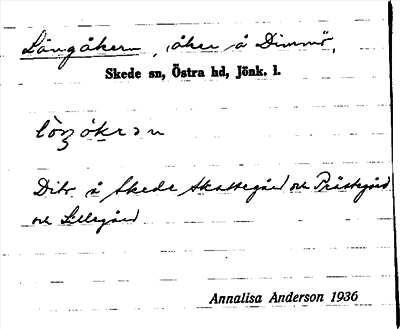 Långåkern, åker å Dimmö,
Skede sn, Östra hd, Jönk. l.
Dito å Skede Skattegård och Prästegård
och Lillegård
Annalisa Anderson 1936